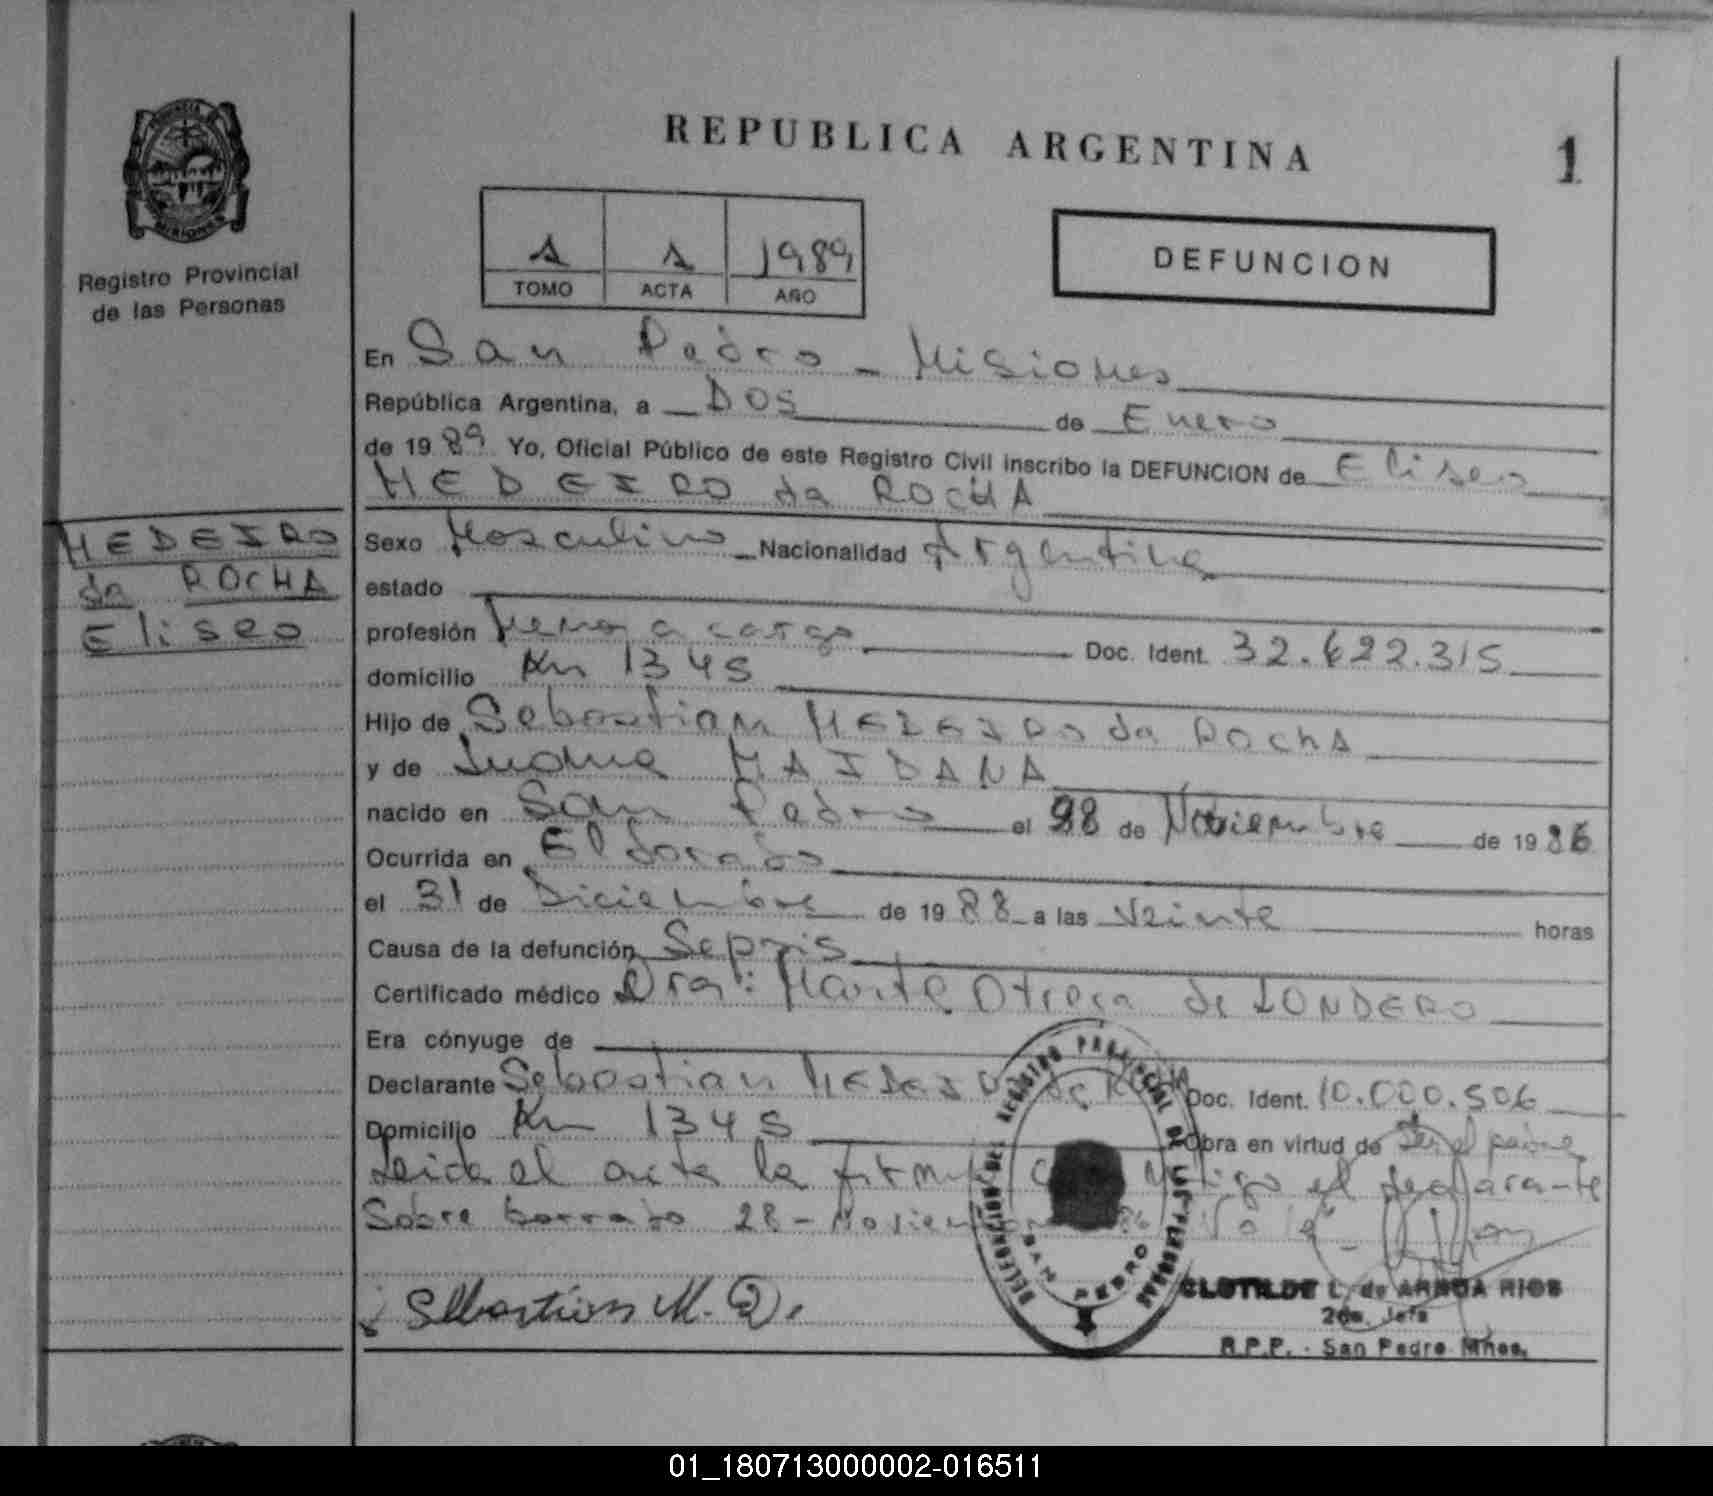 REPUBLICA ARGENTINA
1
PROVINCIA
MISIONES
Registro Provincial
de las Personas
1 1 1989
TOMO ACTA AÑO
DEFUNCION
En San Pedro - Misiones
República Argentina, a Dos de Enero
de 1989 Yo, Oficial Público de este Registro Civil inscribo la DEFUNCION de Eliseo
MEDEIRO da ROCHA
MEDEIRO
da ROCHA
Eliseo
Sexo Masculino Nacionalidad Argentina
estado
profesión Menor a cargo Doc. Ident. 32.622.315
domicilio Km 1345
Hijo de Sebastian MEDEIRO da Rocha
y de MAIDANA
nacido en San Pedro el 28 de Noviembre de 1986
Ocurrida en Eldorado
el 31 de Diciembre de 1988 a las Veinte horas
Causa de la defunción Sepsis
Certificado médico Dra: de LONDERO
Era cónyuge de
Declarante Sebastian MEDEIRO da Rocha Doc. Ident. 10.000.506
Domicilio Km 1345 Obra en virtud de Ser el padre
Leida el acta la firma el declarante
Sobre borrado 28 - Noviembre 86 Vale -
Sebastian M. D.
DELEGACION DEL REGISTRO PROVINCIAL DE LAS PERSONAS
SAN PEDRO
CLOTILDE L. de ARRUA RIOS
2da. Jefa
R.P.P. - San Pedro Mnes.
01_180713000002-016511